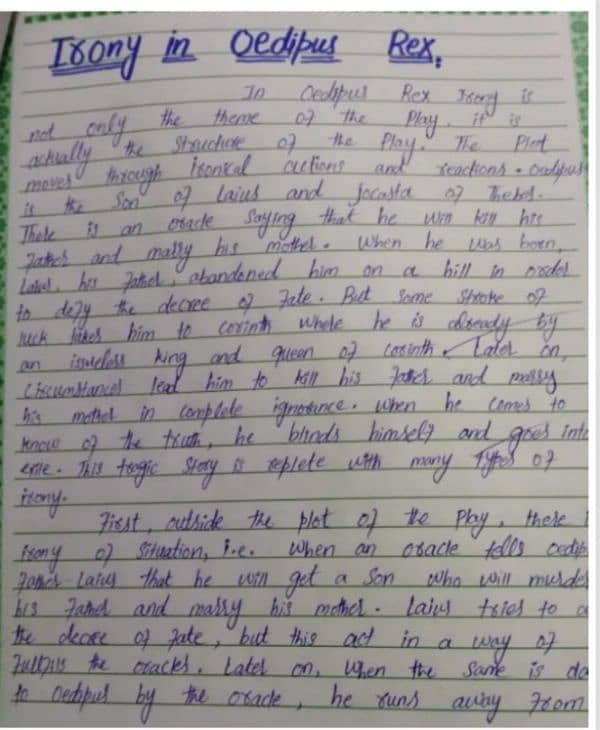 Irony in Oedipus Rex.
In Oedipus Rex Irony is
not only the theme of the Play. it is
actually the structure of the Play. The Plot
moves through ironical actions and reactions. oedipus
is the Son of Laius and Jocasta of Thebes.
There is an oracle Saying that he will kill his
Father and marry his mother. When he was born,
Laius, his Father, abandoned him on a hill in order
to defy the decree of Fate. But some stroke of
luck takes him to corinth where he is already by
an issueless king and queen of corinth. Later on,
Circumstances lead him to kill his Father and marry
his mother in complete ignorance. When he comes to
know of the truth, he blinds himself and goes into
exile. This tragic story is replete with many Types of
irony.
First, outside the plot of the Play, there i
irony of Situation, i.e. when an oracle tells oedip
Father Laius that he will get a Son who will murde
his Father and marry his mother. Laius tries to a
the decree of Fate, but this act in a way of
Fulfills the oracles. Later on, when the same is do
to Oedipus by the oracle, he runs away From